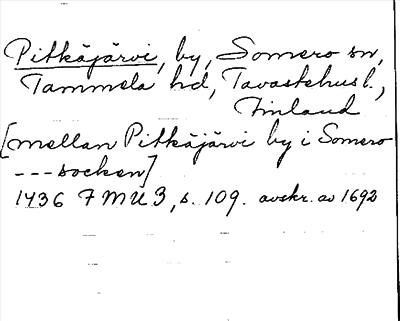 Pitkäjärvi, by, Somero sn,
Tammela hd, Tavastehus l.,
Finland
[mellan Pitkäjärvi by i Somero
--- socken]
1436 FMU 3, s. 109. avskr. av 1692